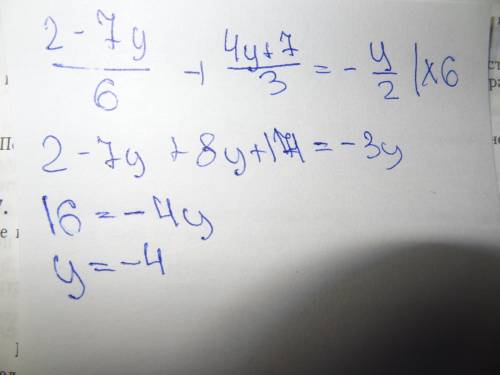 (2-7y)/6 + (4y+7)/3 = -y/2 |×6
2-7y+8y+14=-3y
16=-4y
y=-4